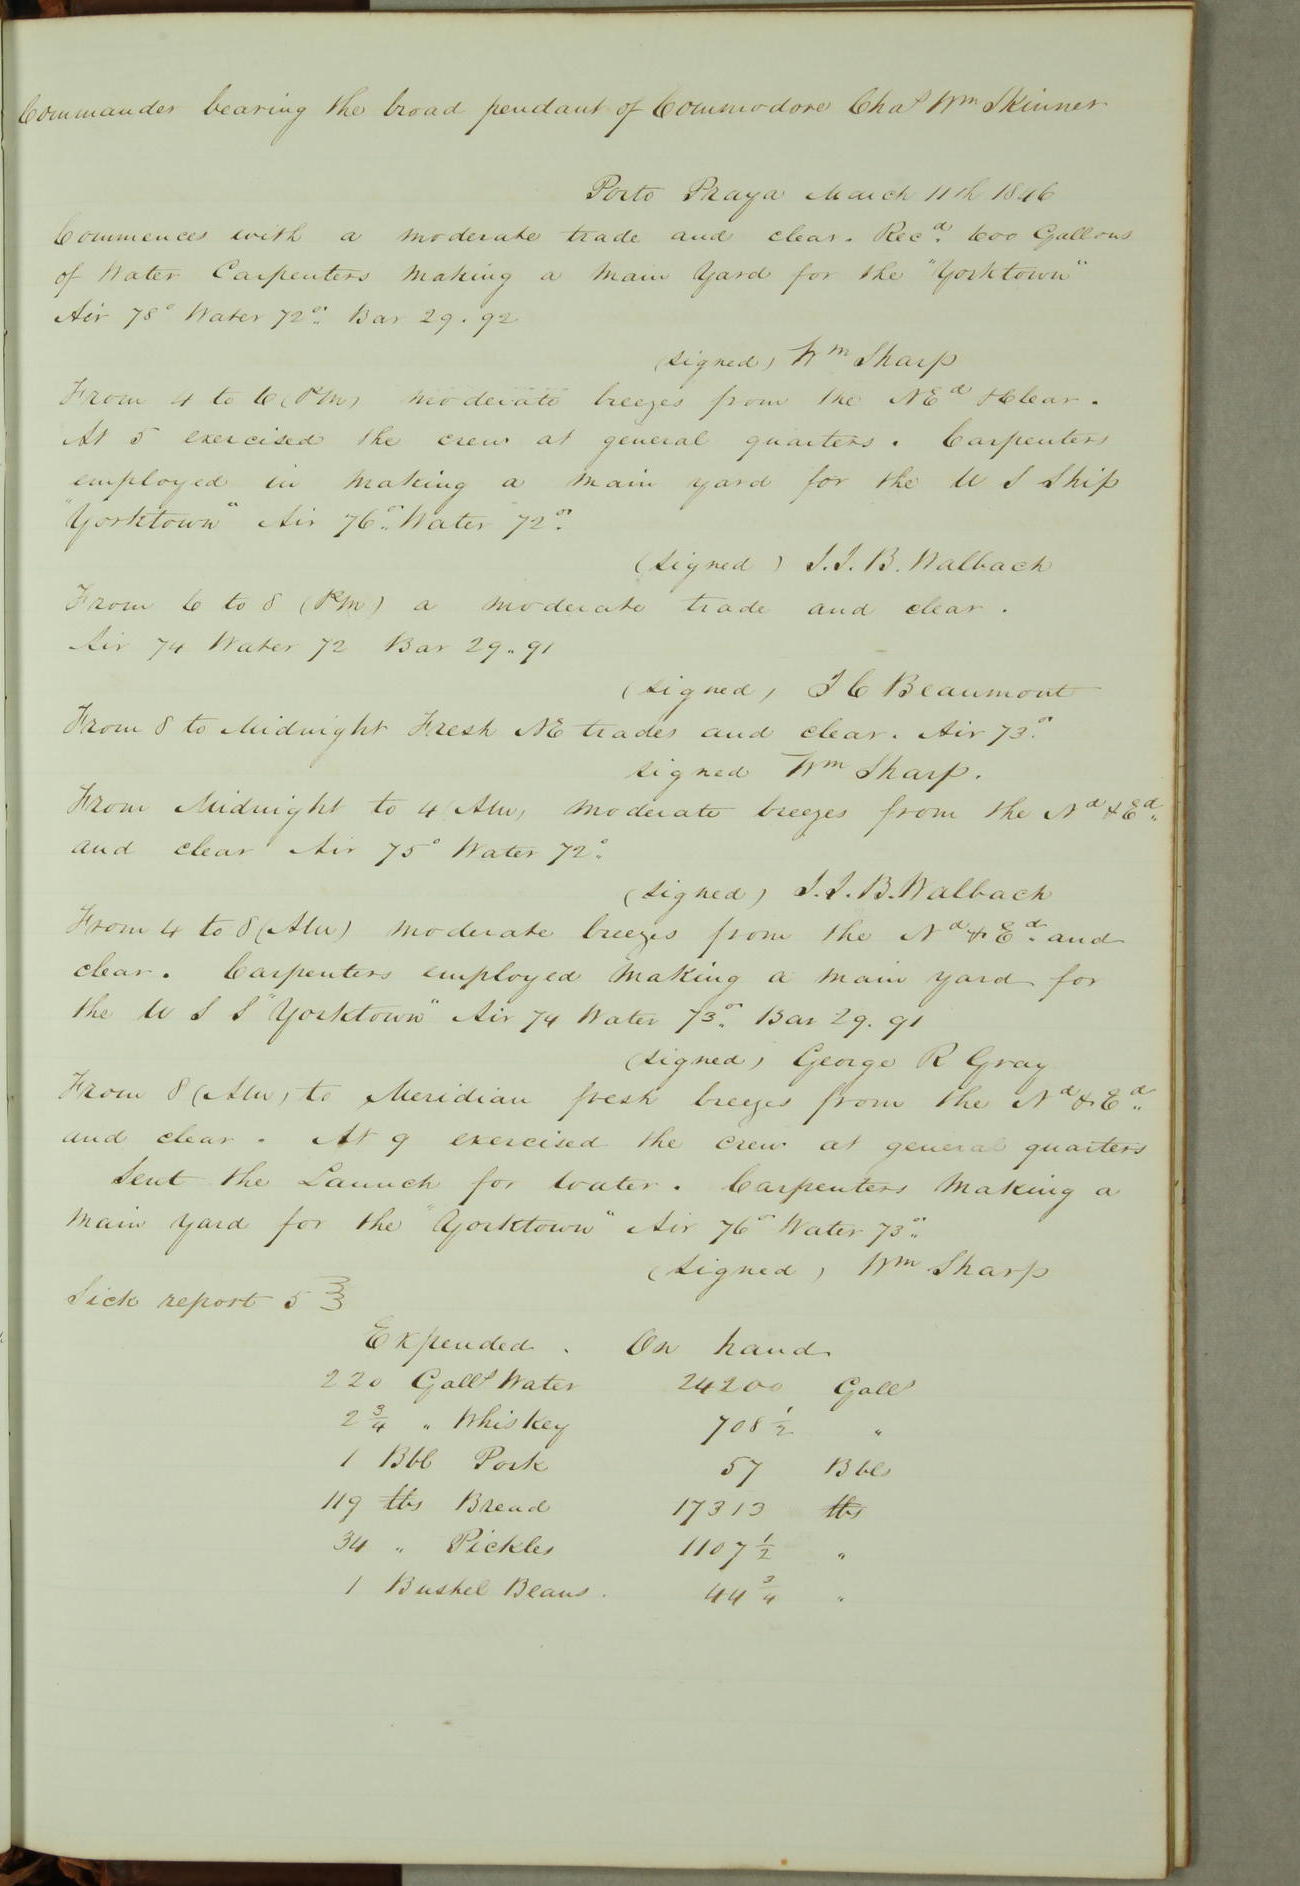 Commander bearing the broad pendant of Commodore Chas Wm Skinner
Porto Praya March 11th 1846
Commences with a moderate trade and clear. Recd. 600 Gallons
of Water Carpenters making a main Yard for the "Yorktown"
Air 78° Water 72° Bar 29.92
(signed) Wm Sharp
From 4 to 6 (PM) moderate breezes from the NEd & Clear.
At 5 exercised the crew at general quarters. Carpenters
employed in making a main yard for the U S Ship
"Yorktown" Air 76° Water 72°
(signed) J.J.B. Walbach
From 6 to 8 (PM) a moderate trade and clear.
Air 74 Water 72 Bar 29.91
(signed) J C Beaumont
From 8 to Midnight Fresh NE trades and clear. Air 73°
signed Wm Sharp.
From Midnight to 4 (AM) moderate breezes from the Nd & Ed.
and clear Air 75° Water 72°.
(signed) J.J.B. Walbach
From 4 to 8 (AM) moderate breezes from the Nd & Ed. and
clear. Carpenters employed making a main yard for
the U S S "Yorktown" Air 74 Water 73° Bar 29.91
(signed) George R Gray
From 8 (AM) to Meridian fresh breezes from the Nd & Ed.
and clear. At 9 exercised the crew at general quarters
Sent the Launch for water. Carpenters making a
main yard for the "Yorktown" Air 76° Water 73°
(signed) Wm Sharp
Sick report 5 3/3
Expended. On hand
220 Galls Water 24200 Galls
2 3/4 " Whiskey 708 1/2 "
1 Bbl Pork 57 Bbls
119 lbs Bread 17313 lbs
34 " Pickles 1107 1/2 "
1 Bushel Beans. 44 3/4 "